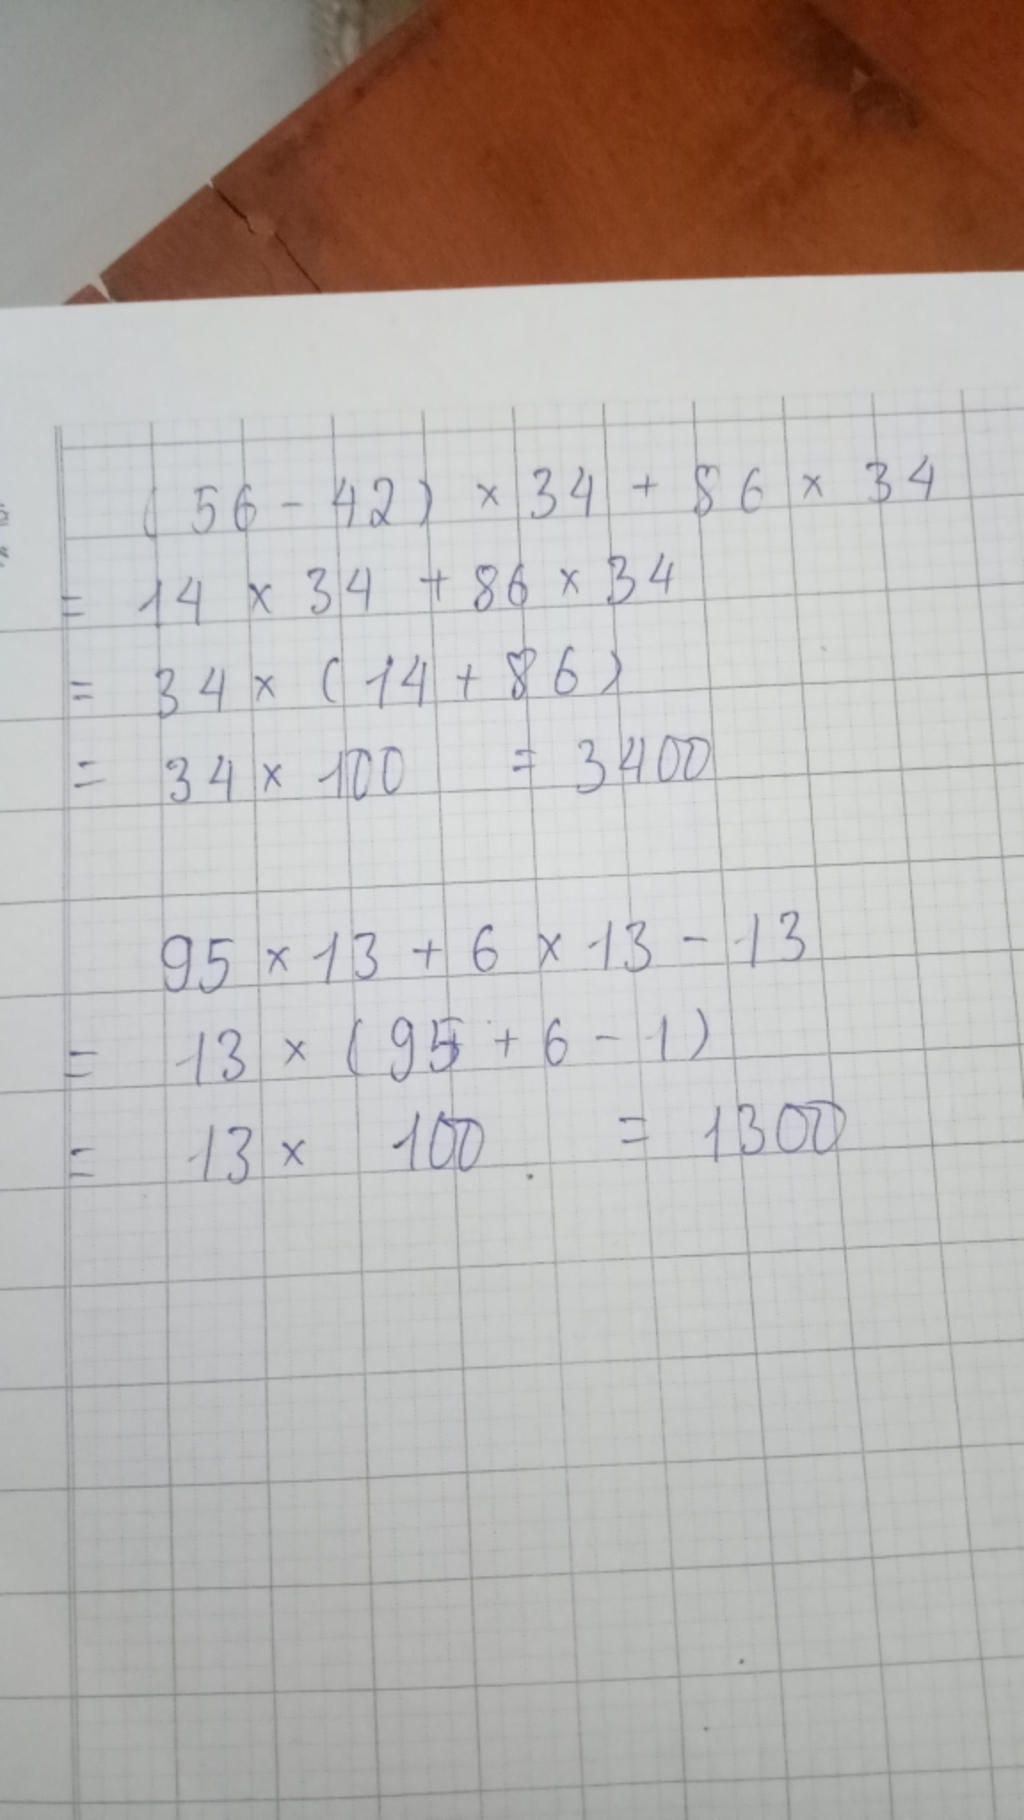 (56 - 42) × 34 + 86 × 34
= 14 × 34 + 86 × 34
= 34 × (14 + 86)
= 34 × 100 = 3400
95 × 13 + 6 × 13 - 13
= 13 × (95 + 6 - 1)
= 13 × 100 = 1300